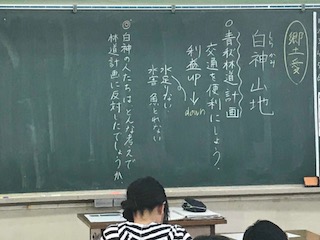 郷土愛
しらかみ
白神山地
○青秋林道計画
交通を便利にしよう．
利益up→down
水足りない
水害 魚とれない
◎白神の人たちはどんな考えで
林道計画に反対したでしょうか